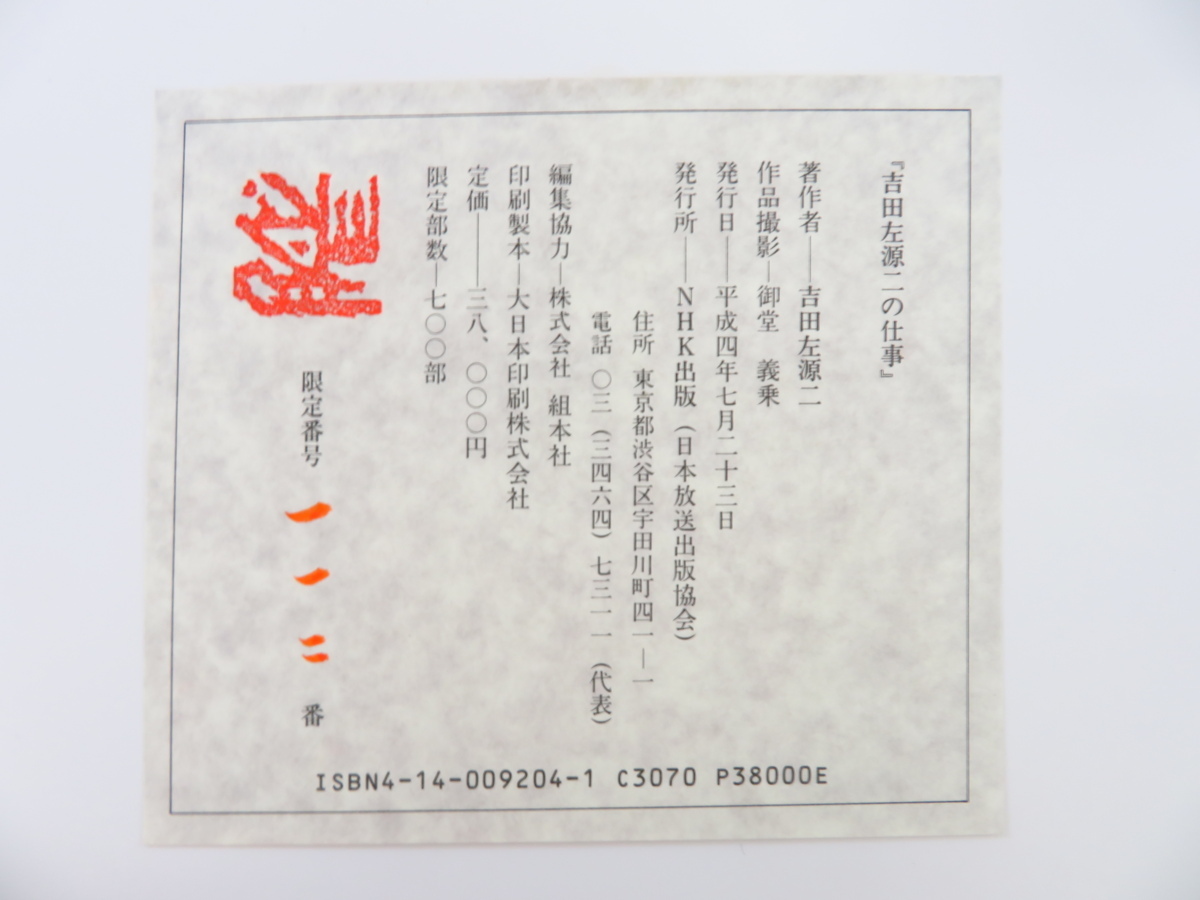 『吉田左源二の仕事』
著作者――吉田左源二
作品撮影―御堂　義乗
発行日――平成四年七月二十三日
発行所――NHK出版（日本放送出版協会）
住所　東京都渋谷区宇田川町四一―一
電話　〇三（三四六四）七三一一（代表）
編集協力―株式会社　組本社
印刷製本―大日本印刷株式会社
定価――三八、〇〇〇円
限定部数―七〇〇部
限定番号　一一二番
ISBN4-14-009204-1 C3070 P38000E